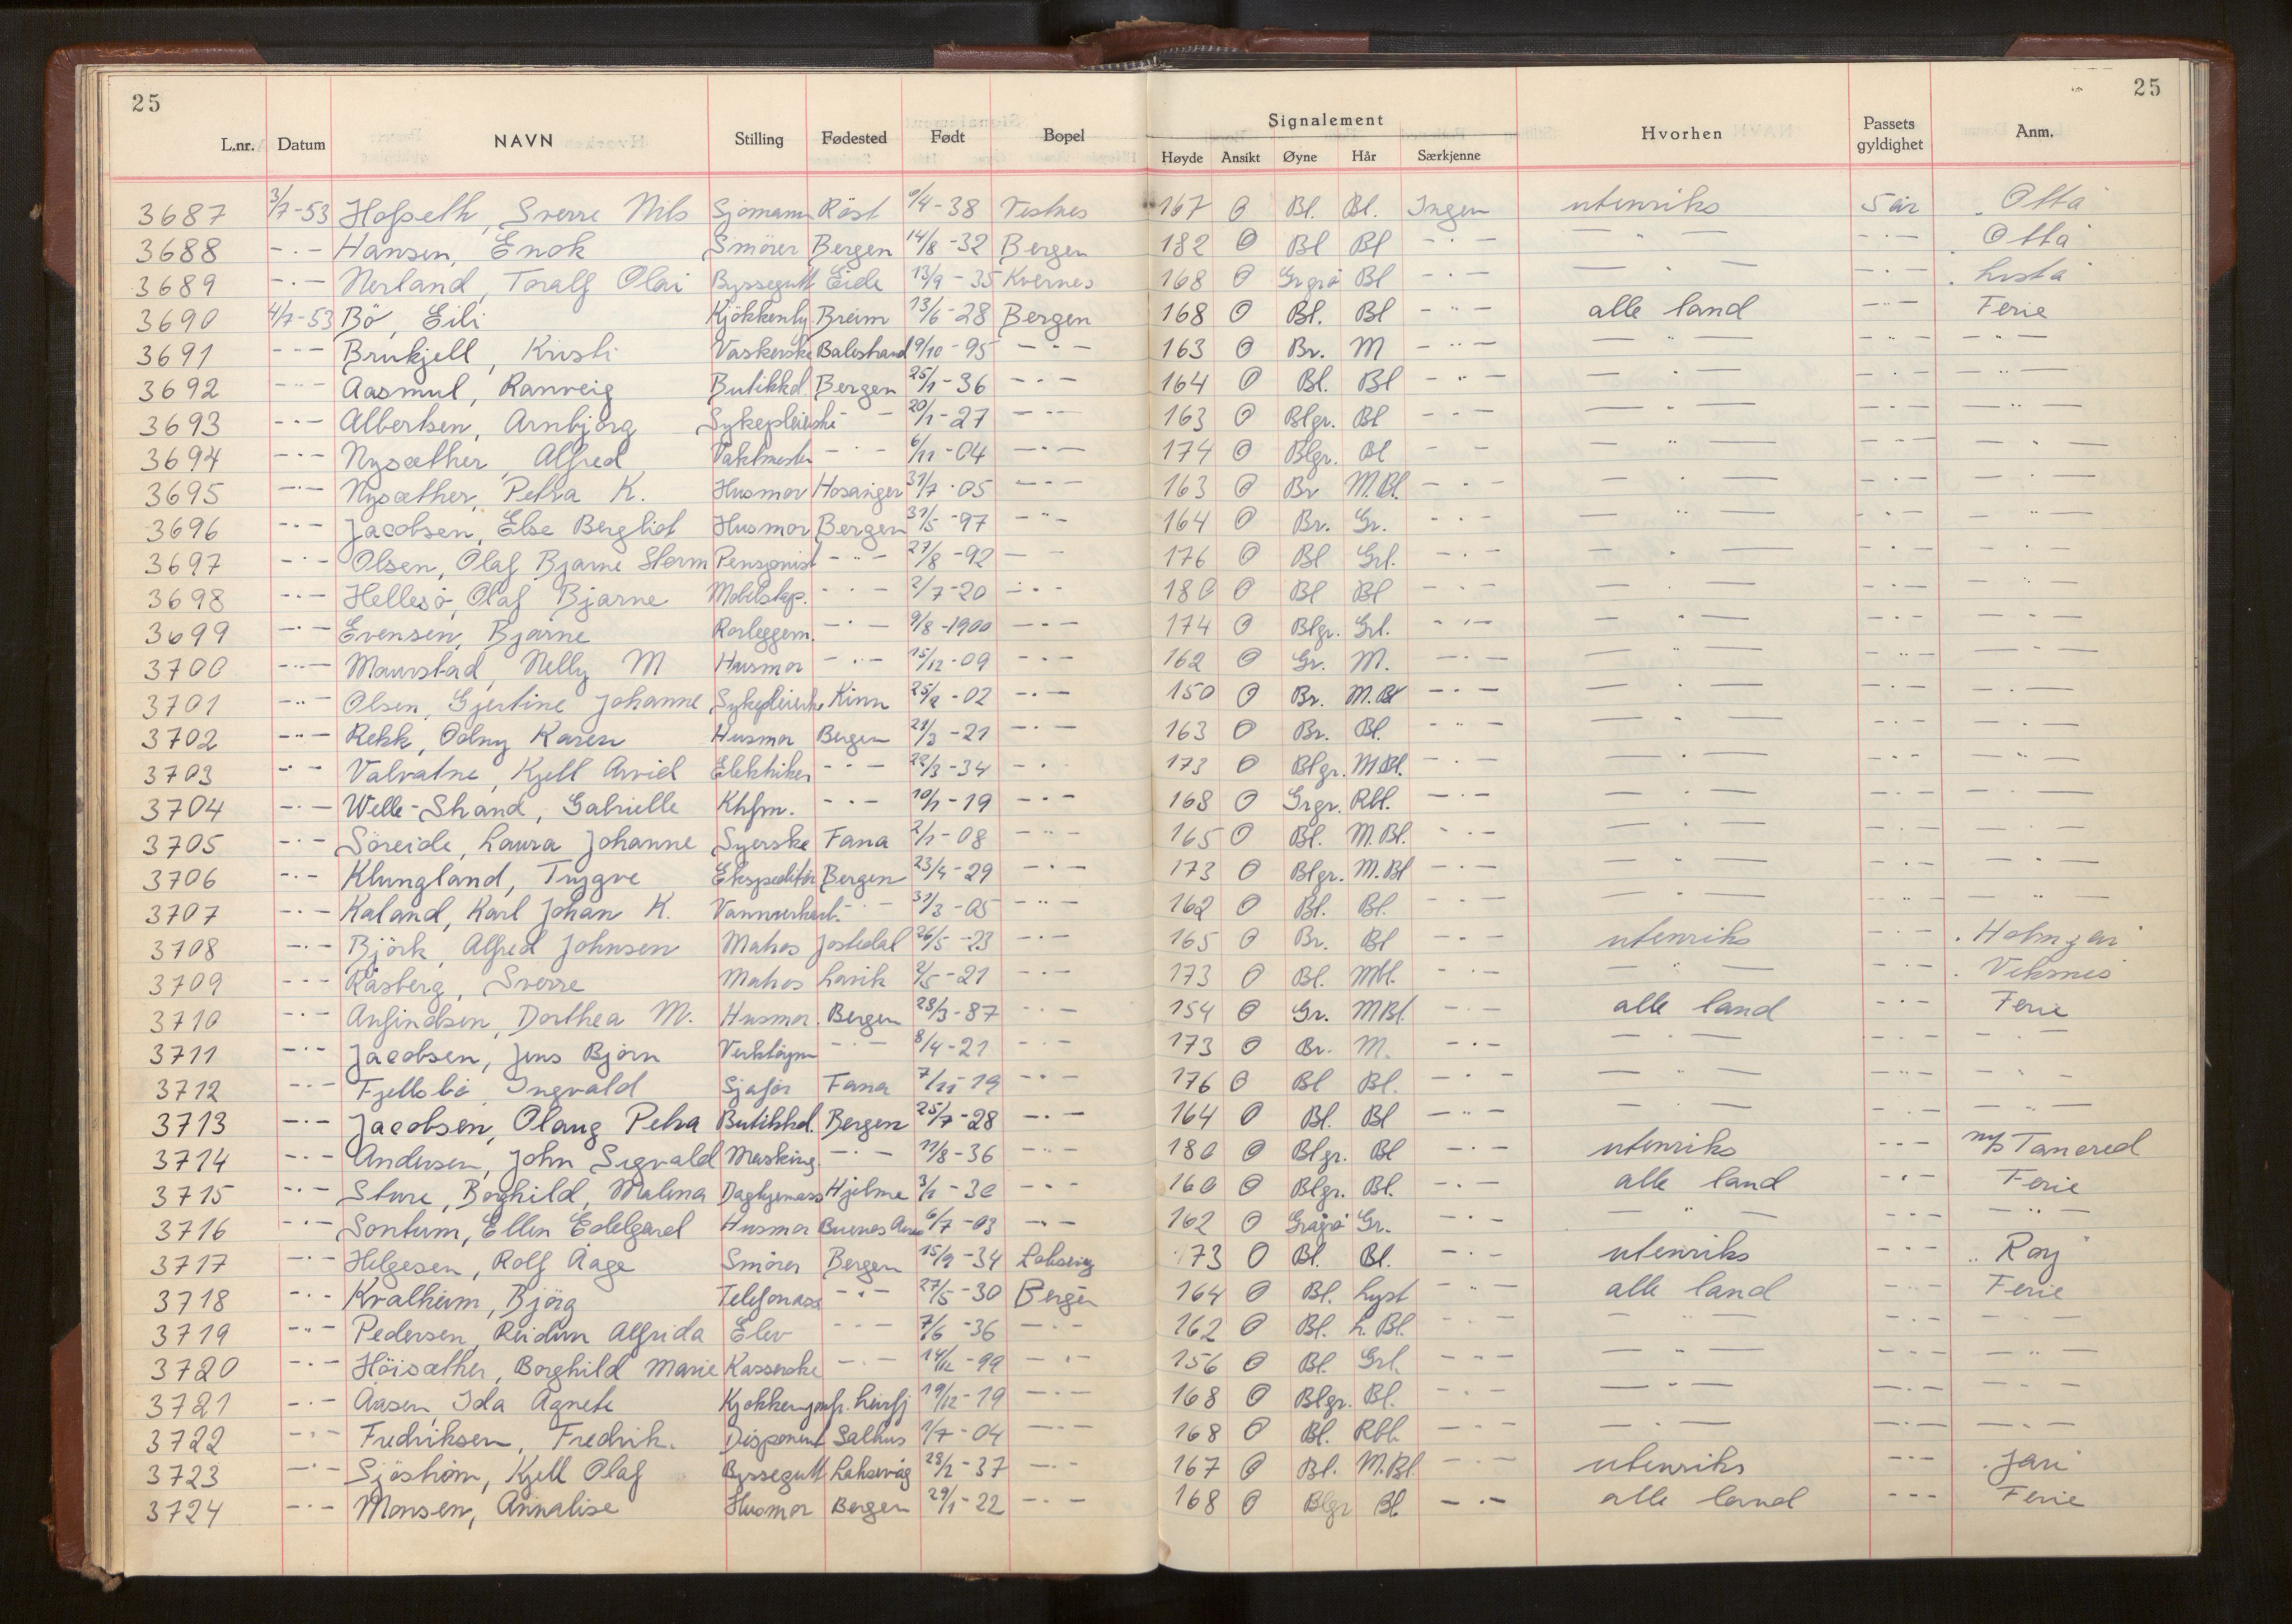 25 25
Signalement
L.nr. Datum NAVN Stilling Fødested Født Bopel Høyde Ansikt Øyne Hår Særkjenne Hvorhen Passets gyldighet Anm.
3687 3/7-53 Hofseth, Sverre Nils Sjömann Röst 9/4-38 Vestnes 167 O Bl. Bl. Ingen utenriks 5 år "Otta"
3688 -"- Hansen, Enok Smörer Bergen 14/8-32 Bergen 182 O Bl Bl -"- -"- -"- "Otta"
3689 -"- Nerland, Toralf Olai Byssegutt Eide 13/9-35 Kvernes 168 O Grgrö Bl -"- -"- -"- "Lista"
3690 4/7-53 Bö, Eili Kjökkenhj. Breim 13/6-28 Bergen 168 O Bl. Bl -"- alle land -"- Ferie
3691 -"- Brukjell, Kristi Vaskerske Balestrand 9/10-95 -"- 163 O Br. M -"- -"- -"- -"-
3692 -"- Aasmul, Ranveig Butikkd. Bergen 25/1-36 -"- 164 O Bl. Bl -"- -"- -"- -"-
3693 -"- Albertsen, Arnbjörg Sykepleierske -"- 20/1-27 -"- 163 O Blgr. Bl -"- -"- -"- -"-
3694 -"- Nysæther, Alfred Vaktmester -"- 6/11-04 -"- 174 O Blgr. Bl -"- -"- -"- -"-
3695 -"- Nysæther, Petra K. Husmor Hosanger 31/7-05 -"- 163 O Br M.Bl. -"- -"- -"- -"-
3696 -"- Jacobsen, Else Bergliot Husmor Bergen 31/5-97 -"- 164 O Br. Gr. -"- -"- -"- -"-
3697 -"- Olsen, Olaf Bjarne Storm Pensjonist -"- 27/8-92 -"- 176 O Bl Grl. -"- -"- -"- -"-
3698 -"- Hellesö, Olaf Bjarne Möbelskp. -"- 2/7-20 -"- 180 O Bl Bl -"- -"- -"- -"-
3699 -"- Evensen, Bjarne Rørleggerm. -"- 9/8-1900 -"- 174 O Blgr. Grl. -"- -"- -"- -"-
3700 -"- Maurstad, Nelly M Husmor -"- 15/12-09 -"- 162 O Gr. M. -"- -"- -"- -"-
3701 -"- Olsen, Gjertine Johanne Sykepleierske Kinn 25/9-02 -"- 150 O Br. M.Bl -"- -"- -"- -"-
3702 -"- Rekk, Odny Karen Husmor Bergen 21/3-21 -"- 163 O Br. Bl. -"- -"- -"- -"-
3703 -"- Valvatne, Kjell Arvid Elektriker -"- 22/3-34 -"- 173 O Blgr. M.Bl. -"- -"- -"- -"-
3704 -"- Welle-Strand, Gabrielle Ktrfm. -"- 10/1-19 -"- 168 O Grgr. Rbl. -"- -"- -"- -"-
3705 -"- Söreide, Laura Johanne Syerske Fana 2/1-08 -"- 165 O Bl. M.Bl. -"- -"- -"- -"-
3706 -"- Klungland, Trygve Ekspeditör Bergen 23/4-29 -"- 173 O Blgr. M.Bl -"- -"- -"- -"-
3707 -"- Kaland, Karl Johan K. -"- 31/3-05 -"- 162 O Bl. Bl. -"- -"- -"- -"-
3708 -"- Björk, Alfred Johnsen Matros Jostedal 26/5-23 -"- 165 O Br. Bl -"- utenriks -"- "Holmgar"
3709 -"- Råsberg, Sverre Matros Larvik 2/5-21 -"- 173 O Bl. Mbl. -"- -"- -"- "Viksnes"
3710 -"- Anfindsen, Dorthea M. Husmor. Bergen 28/3-87 -"- 154 O Gr. MBl. -"- alle land -"- Ferie
3711 -"- Jacobsen, Jens Björn Verktöym -"- 8/4-21 -"- 173 O Br. M. -"- -"- -"- -"-
3712 -"- Fjellsbö, Ingvald Sjåför Fana 7/11-19 -"- 176 O Bl Bl. -"- -"- -"- -"-
3713 -"- Jacobsen, Olaug Petra Butikkd. Bergen 25/7-28 -"- 164 O Bl. Bl -"- -"- -"- -"-
3714 -"- Andersen, John Sigvald Masking. -"- 11/8-36 -"- 180 O Blgr. Bl -"- utenriks -"- m/s Tancred
3715 -"- Sture, Borghild, Malena Daghjemass Hjelme 3/1-30 -"- 160 O Blgr. Bl. -"- alle land -"- Ferie
3716 -"- Sontum, Ellen Edelgard Husmor Buenos Aires 6/7-03 -"- 162 O Grågrö Gr. -"- -"- -"- -"-
3717 -"- Helgesen, Rolf Åage Smörer Bergen 15/9-34 Laksevåg 173 O Bl. Bl. -"- utenriks -"- "Roy"
3718 -"- Kvalheim, Björg Telefonass -"- 27/5-30 Bergen 164 O Bl. Lyst -"- alle land -"- Ferie
3719 -"- Pedersen, Reidun Alfrida Elev -"- 7/6-36 -"- 162 O Bl. L.Bl. -"- -"- -"- -"-
3720 -"- Höisæther, Borghild Marie Kasserske -"- 14/12-99 -"- 156 O Bl. Grl. -"- -"- -"- -"-
3721 -"- Aasen, Ida Agnete Kjökkenjomfr. Leirfj 19/12-19 -"- 168 O Blgr. Bl. -"- -"- -"- -"-
3722 -"- Fredriksen, Fredrik. Disponent Salhus 1/7-04 -"- 168 O Bl. Rbl. -"- -"- -"- -"-
3723 -"- Sjöström, Kjell Olaf Byssegutt Laksevåg 28/2-37 -"- 167 O Bl. M.Bl. -"- utenriks -"- "Jari"
3724 -"- Monsen, Annalise Husmor Bergen 29/1-22 -"- 168 O Blgr Bl -"- alle land -"- Ferie